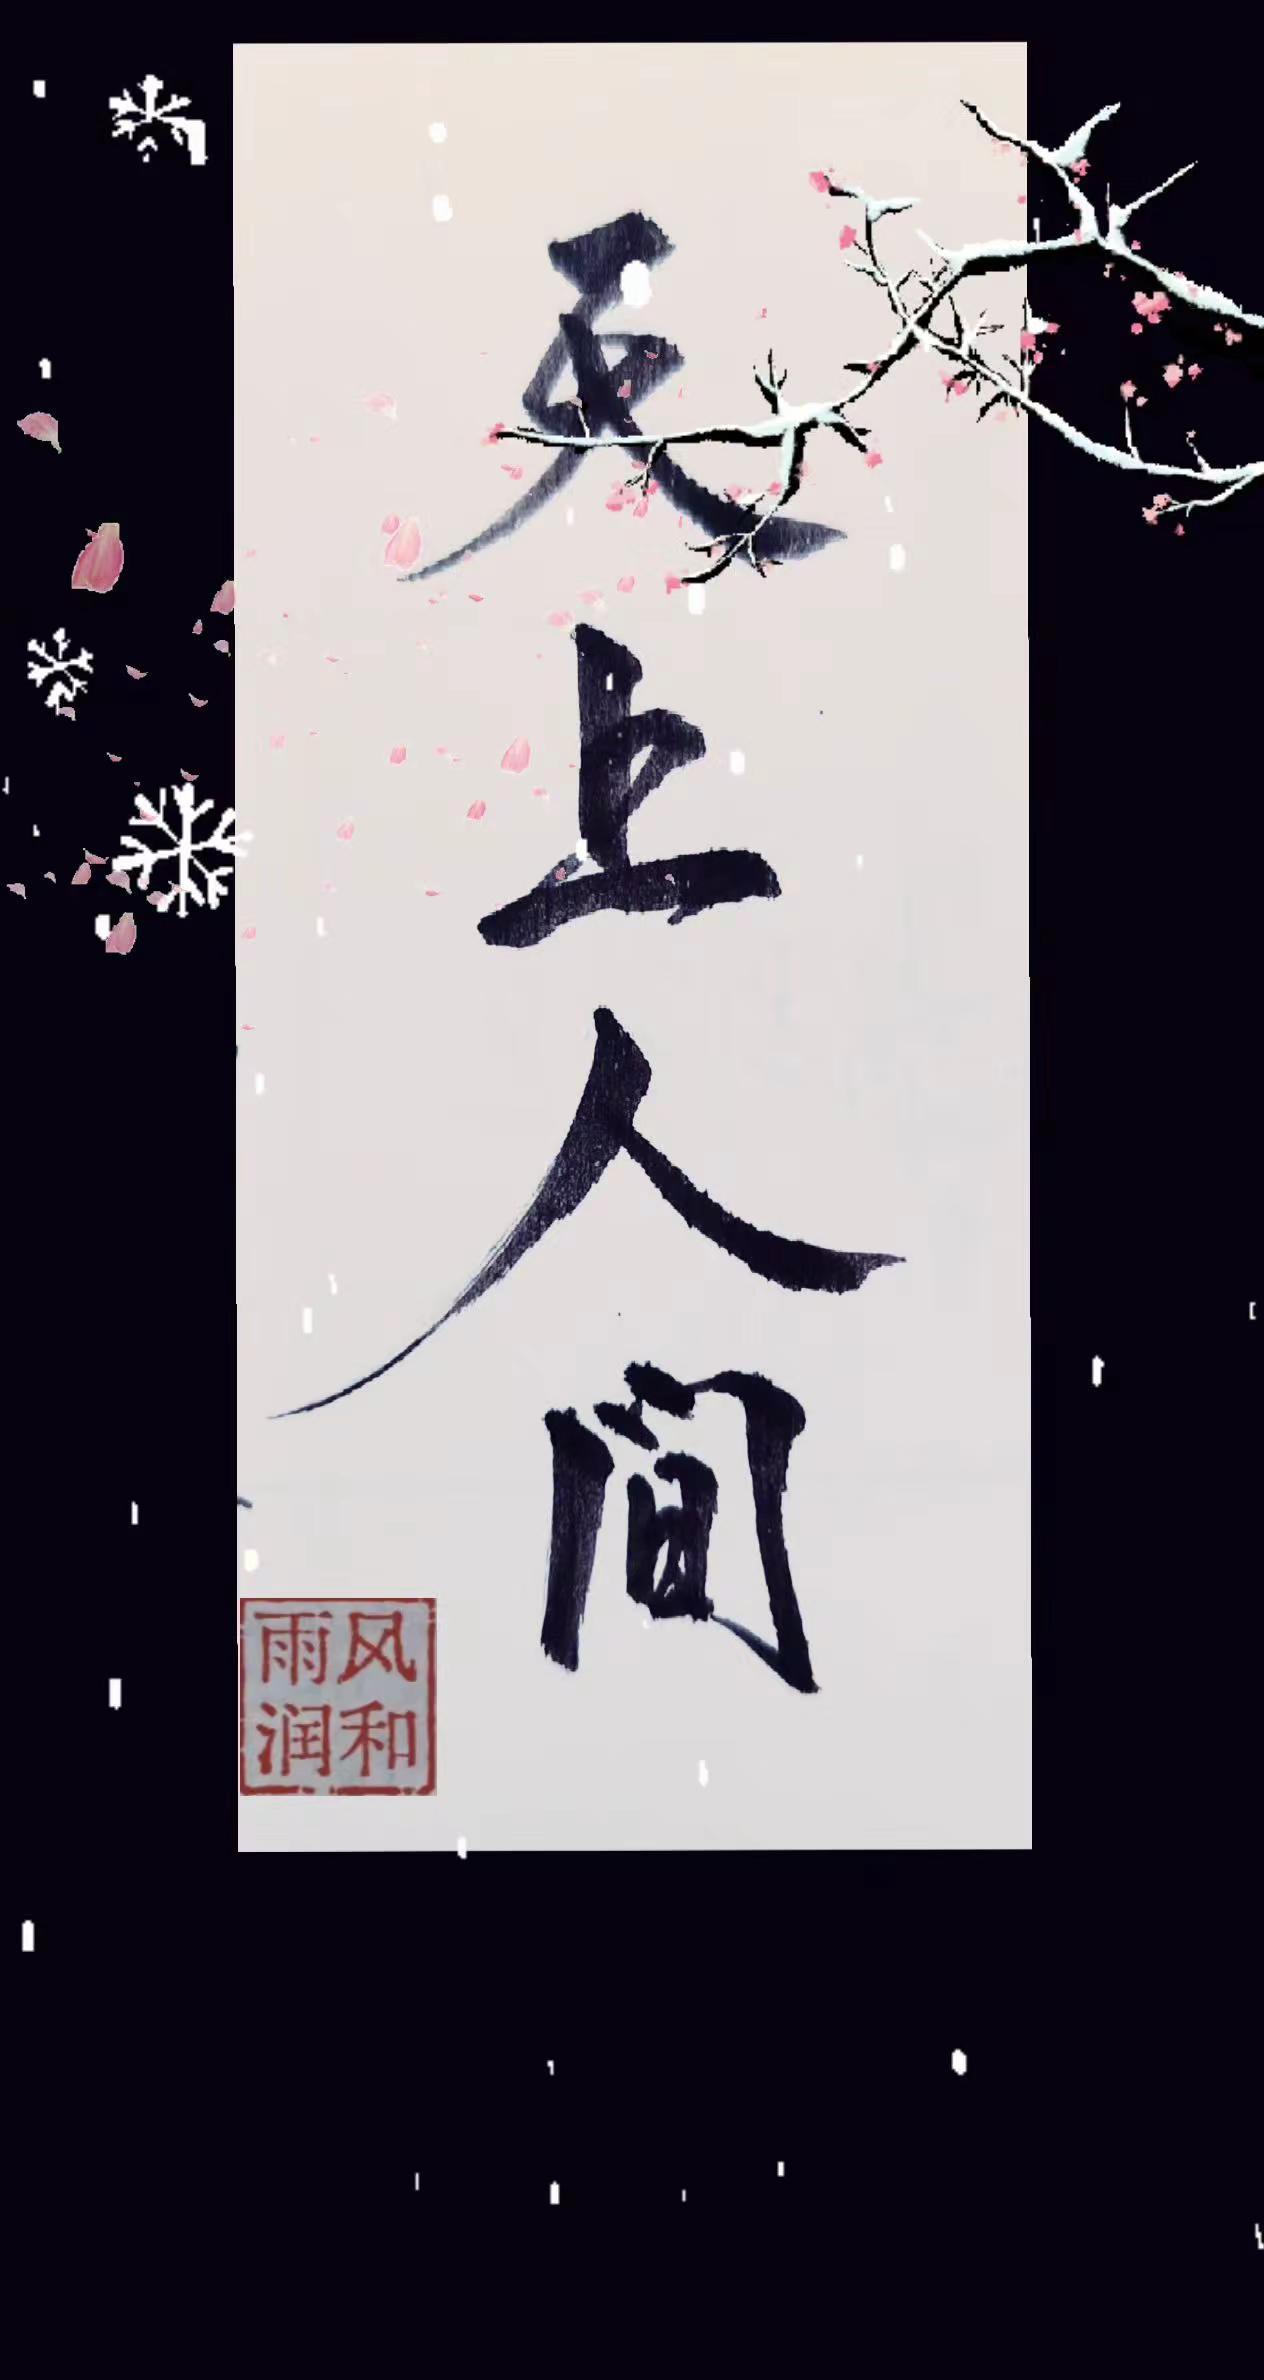 天上人间
风和
雨润